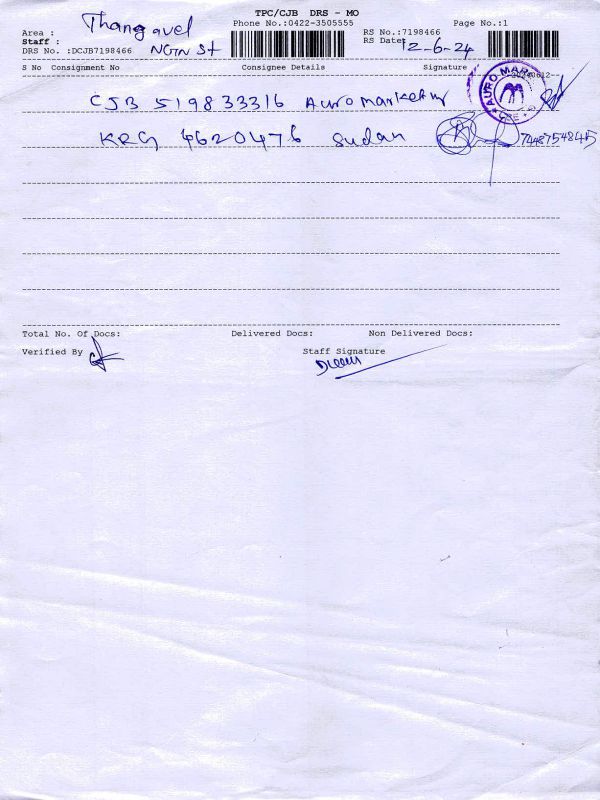 TPC/CJB DRS - MO
Thangavel
Area :
Phone No.:0422-3505555
Page No.:1
Staff :
RS No.:7198466
DRS No. :DCJB7198466 NGTN St
RS Date: 12-6-24
S No Consignment No Consignee Details Signature
CJB 519833316 Auro marketing
AURO MAR
CBE
KRG 4620476 Sudan 7448754845
Total No. Of Docs: Delivered Docs: Non Delivered Docs:
Verified By Staff Signature